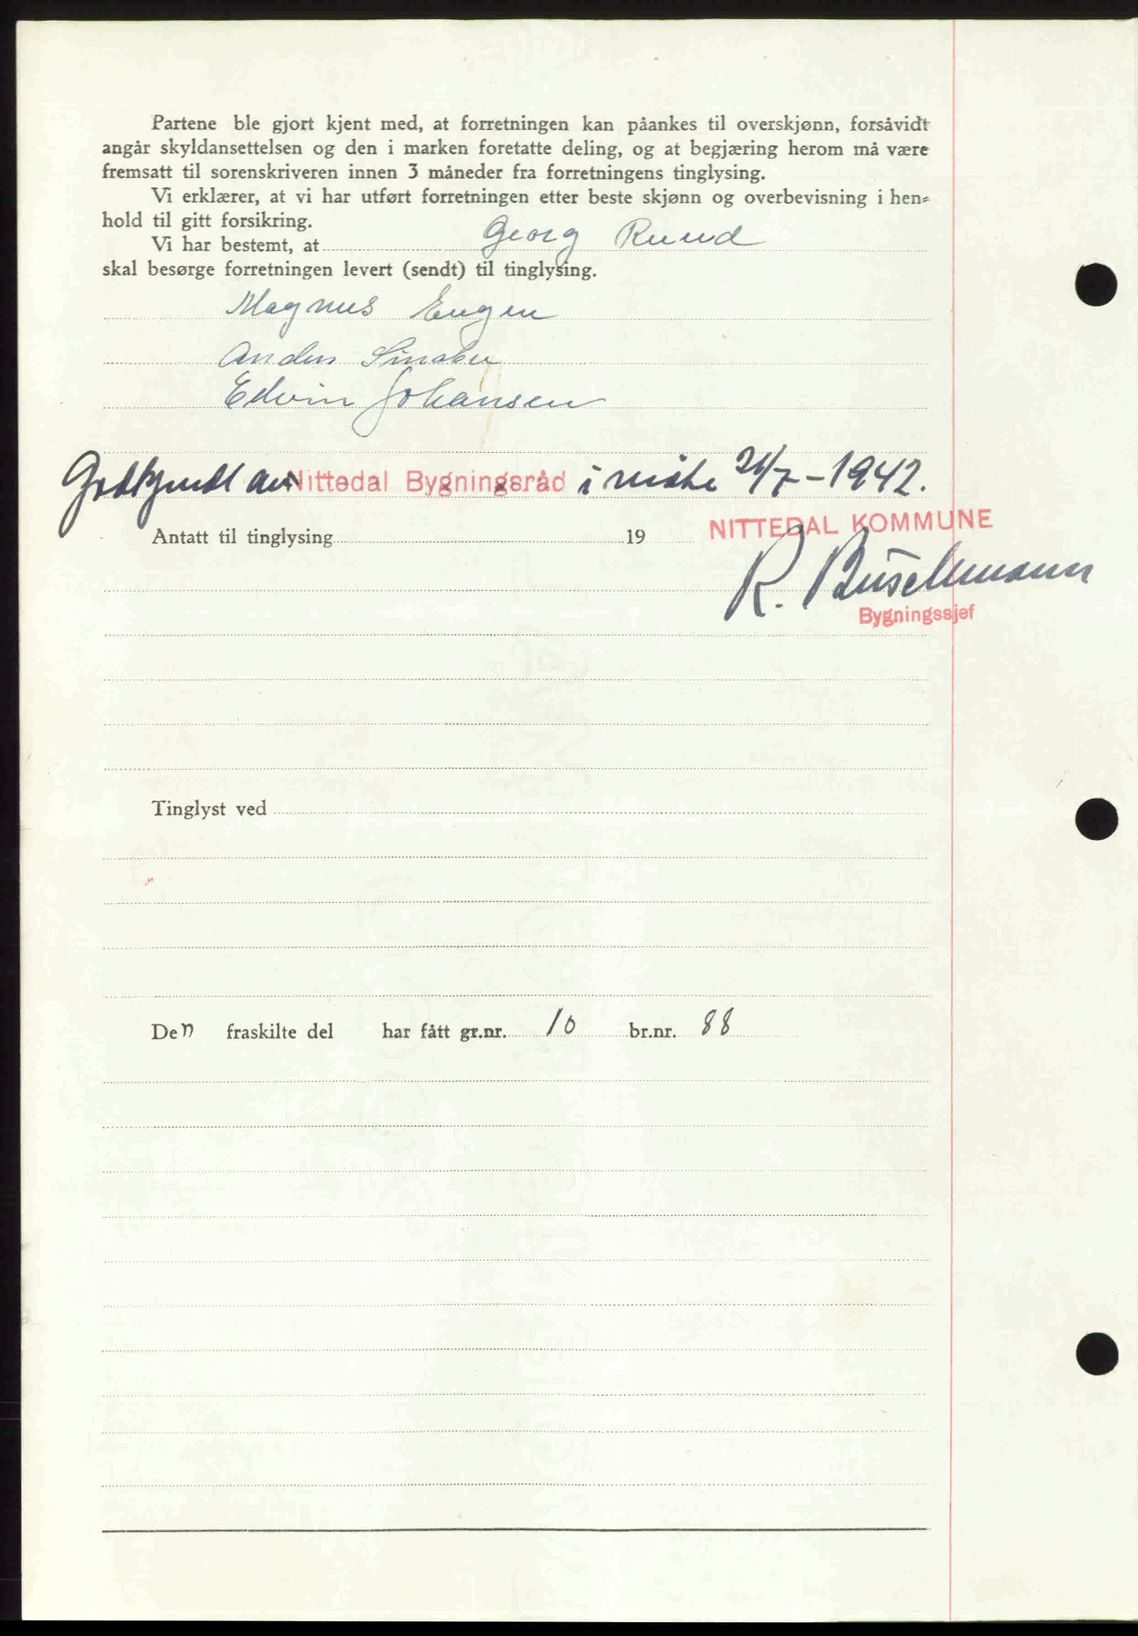 Partene ble gjort kjent med, at forretningen kan påankes til overskjønn, forsåvidt
angår skyldansettelsen og den i marken foretatte deling, og at begjæring herom må være
fremsatt til sorenskriveren innen 3 måneder fra forretningens tinglysing.
Vi erklærer, at vi har utført forretningen etter beste skjønn og overbevisning i hen-
hold til gitt forsikring.
Vi har bestemt, at Georg Ruud
skal besørge forretningen levert (sendt) til tinglysing.
Magnus Engen
Anders
Edvin Johansen
Godkjendt av Nittedal Bygningsråd i møte 21/7-1942.
Antatt til tinglysing 19
NITTEDAL KOMMUNE
R. Buschmann
Bygningssjef
Tinglyst ved
Den fraskilte del har fått gr.nr. 10 br.nr. 88